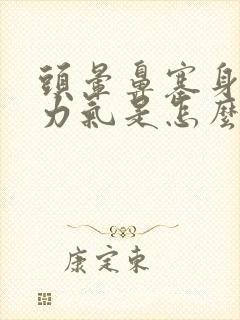 頭暈鼻塞身
力氣是怎麼
康定東